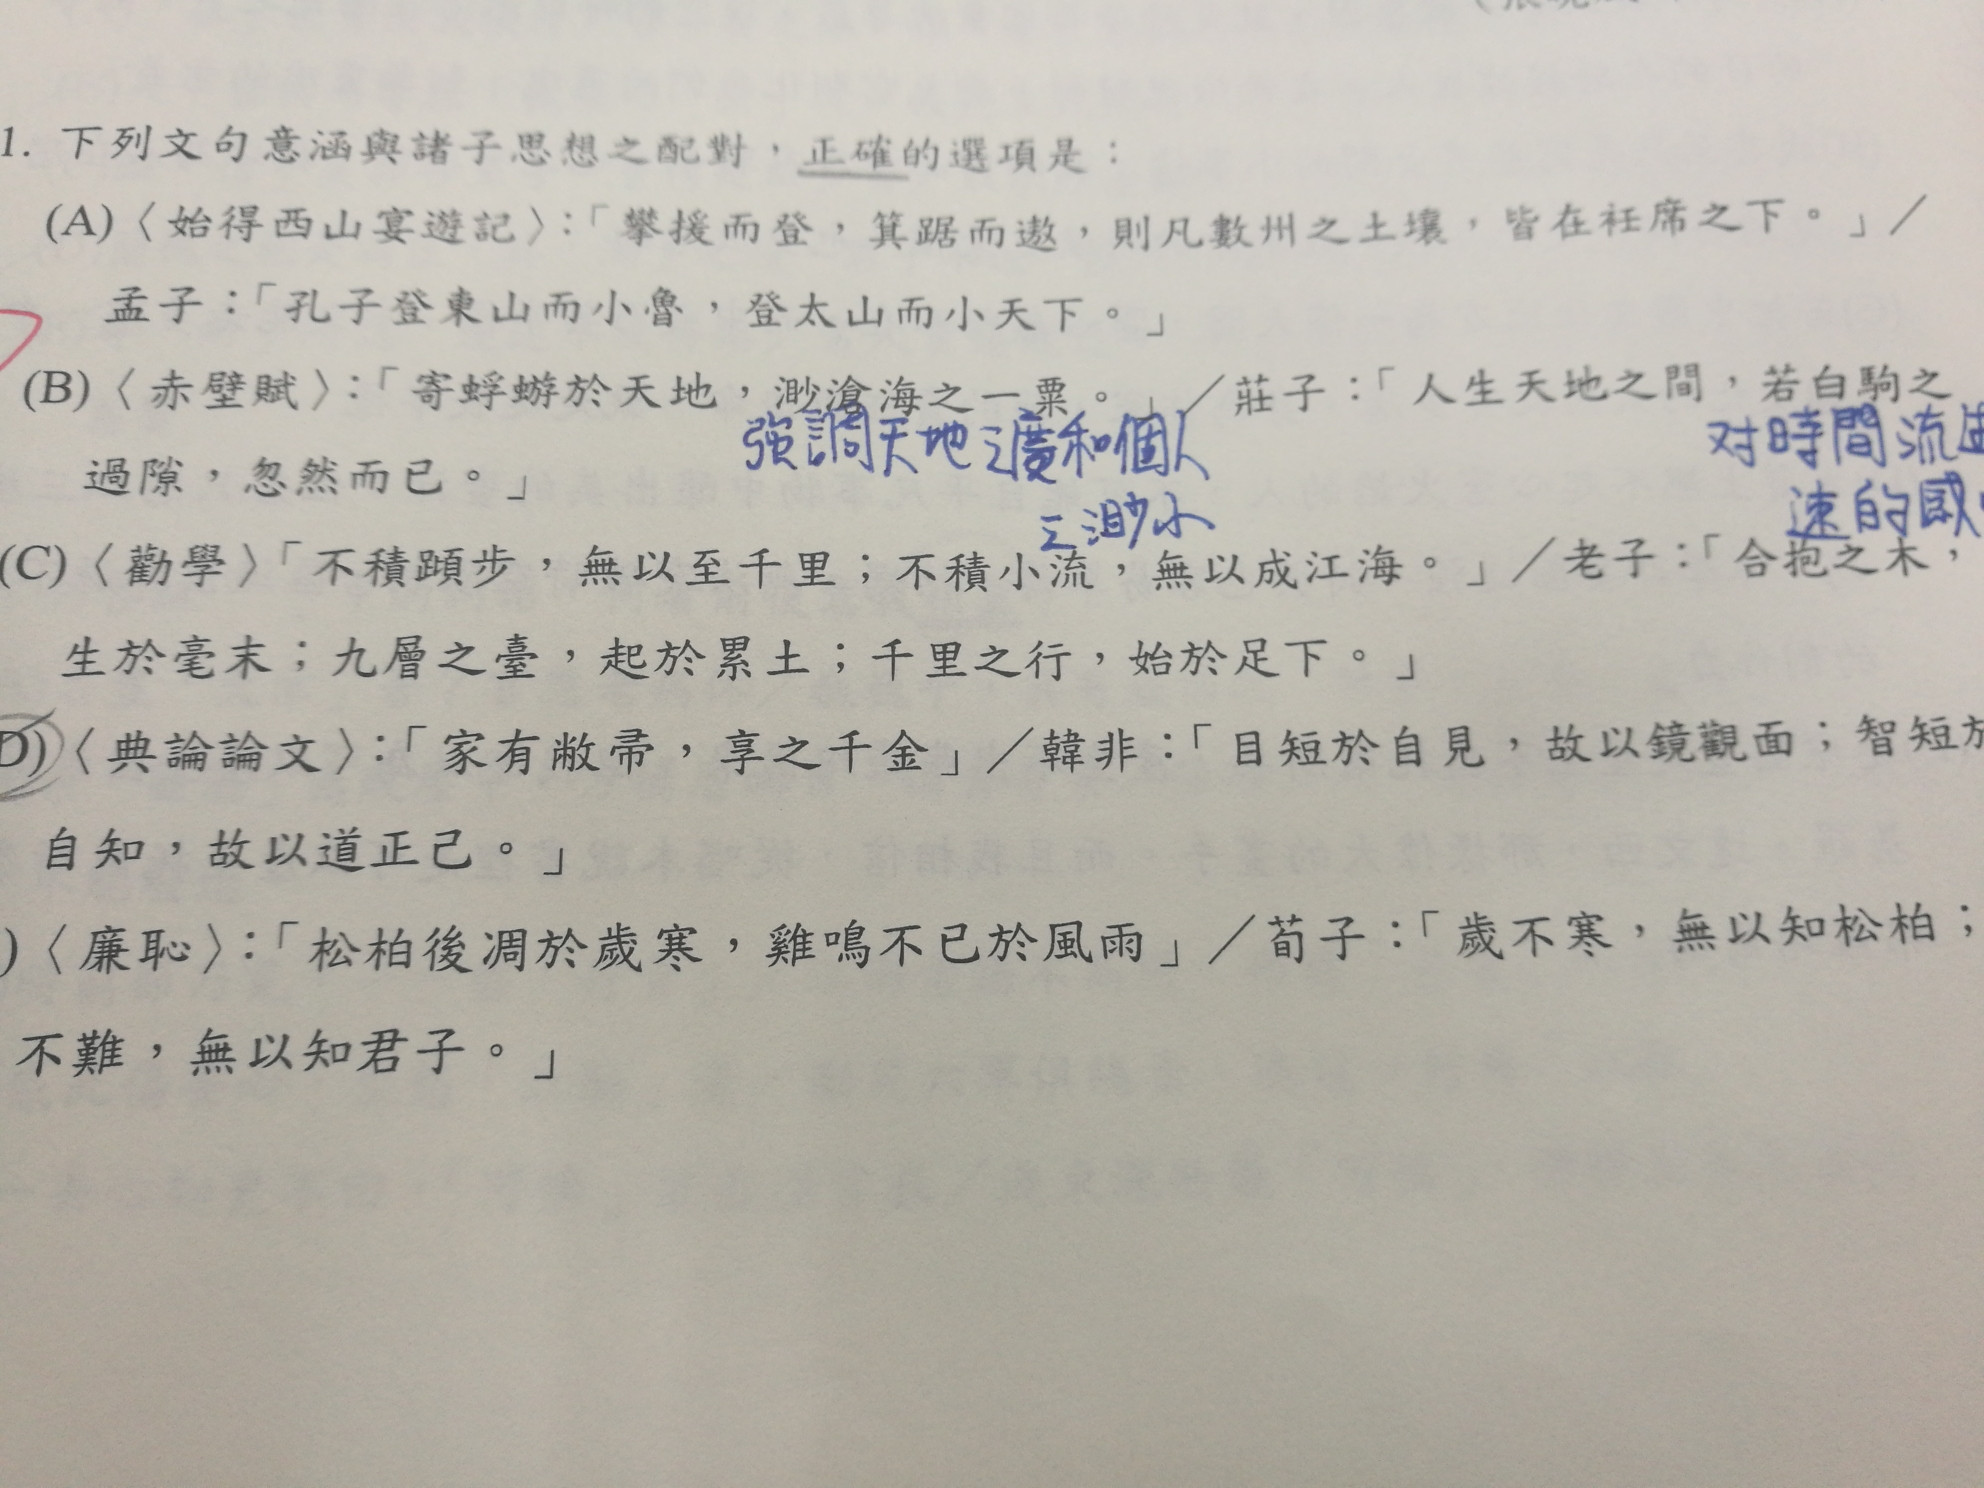 1. 下列文句意涵與諸子思想之配對，正確的選項是：
(A)〈始得西山宴遊記〉：「攀援而登，箕踞而遨，則凡數州之土壤，皆在衽席之下。」／
孟子：「孔子登東山而小魯，登太山而小天下。」
(B)〈赤壁賦〉：「寄蜉蝣於天地，渺滄海之一粟。」／莊子：「人生天地之間，若白駒之
強調天地之廣和個人
对時間流
過隙，忽然而已。」
之渺小
速的感
(C)〈勸學〉「不積蹞步，無以至千里；不積小流，無以成江海。」／老子：「合抱之木，
生於毫末；九層之臺，起於累土；千里之行，始於足下。」
D)〈典論論文〉：「家有敝帚，享之千金」／韓非：「目短於自見，故以鏡觀面；智短於
自知，故以道正己。」
)〈廉恥〉：「松柏後凋於歲寒，雞鳴不已於風雨」／荀子：「歲不寒，無以知松柏；
不難，無以知君子。」